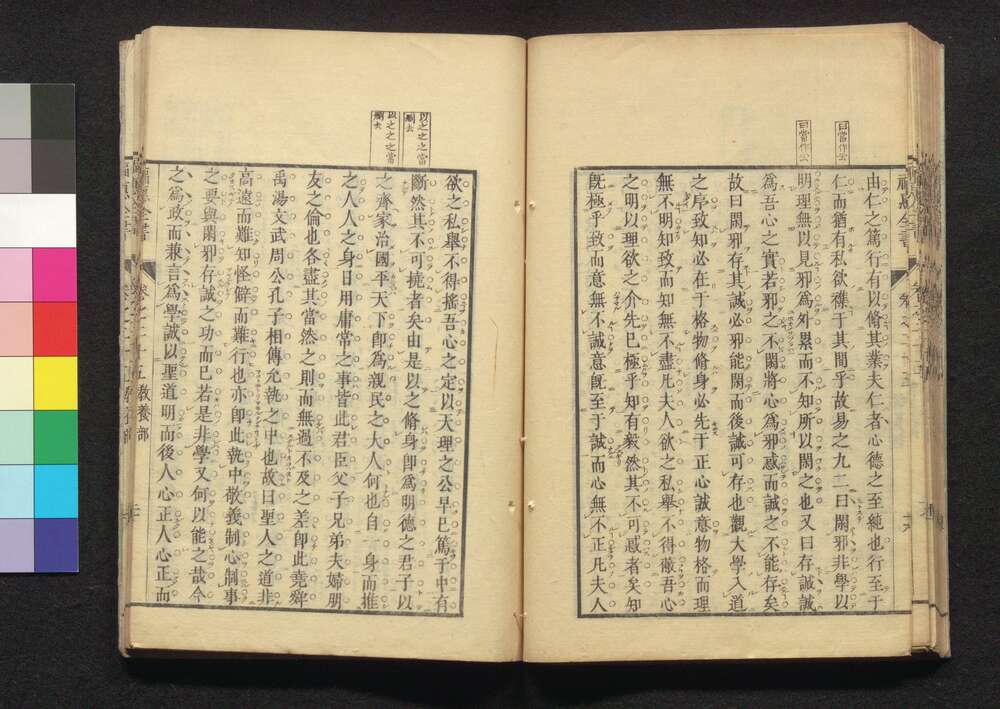 曰當作公
曰當作公
由仁之篤行有以脩其業夫仁者心德之至純也行至于
仁而猶有私欲襍于其間乎故易之九二曰閑邪非學以
明理無以見邪爲外累而不知所以閑之也又曰存誠誠
爲吾心之實若邪之不閑將心爲邪惑而誠之不能存矣
故曰閑邪存其誠必邪能閑而後誠可存也觀大學入道
之序致知必在于格物脩身必先于正心誠意物格而理
無不明知致而知無不盡凡夫人欲之私舉不得蔽吾心
之明以理欲之介先已極乎知有毅然其不可惑者矣知
旣極乎致而意無不誠意旣至于誠而心無不正凡夫人
以之之之當
欲之私舉不得搖吾心之定以天理之公早已篤于中有
斷然其不可撓者矣由是以之脩身卽爲明德之君子以
之齊家治國平天下卽爲親民之大人何也自一身而推
之人人之身日用庸常之事皆此君臣父子兄弟夫婦朋
友之倫也各盡其當然之則而無過不及之差卽此堯舜
禹湯文武周公孔子相傳允執之中也故曰聖人之道非
高遠而難知怪僻而難行也亦卽此執中敬義制心制事
之要與閑邪存誠之功而已若是非學又何以能之哉今
之爲政而兼言爲學誠以聖道明而後人心正人心正而
福惠全書
教養部